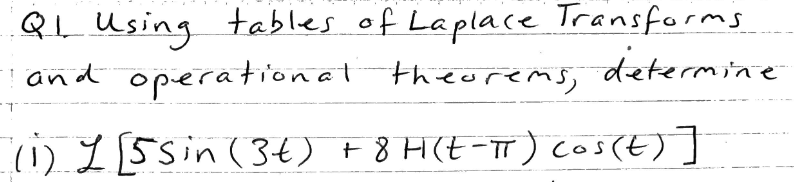 Q1 Using tables of Laplace Transforms
and operational theorems, determine
(i) ℒ[5sin(3t) + 8H(t-π)cos(t)]